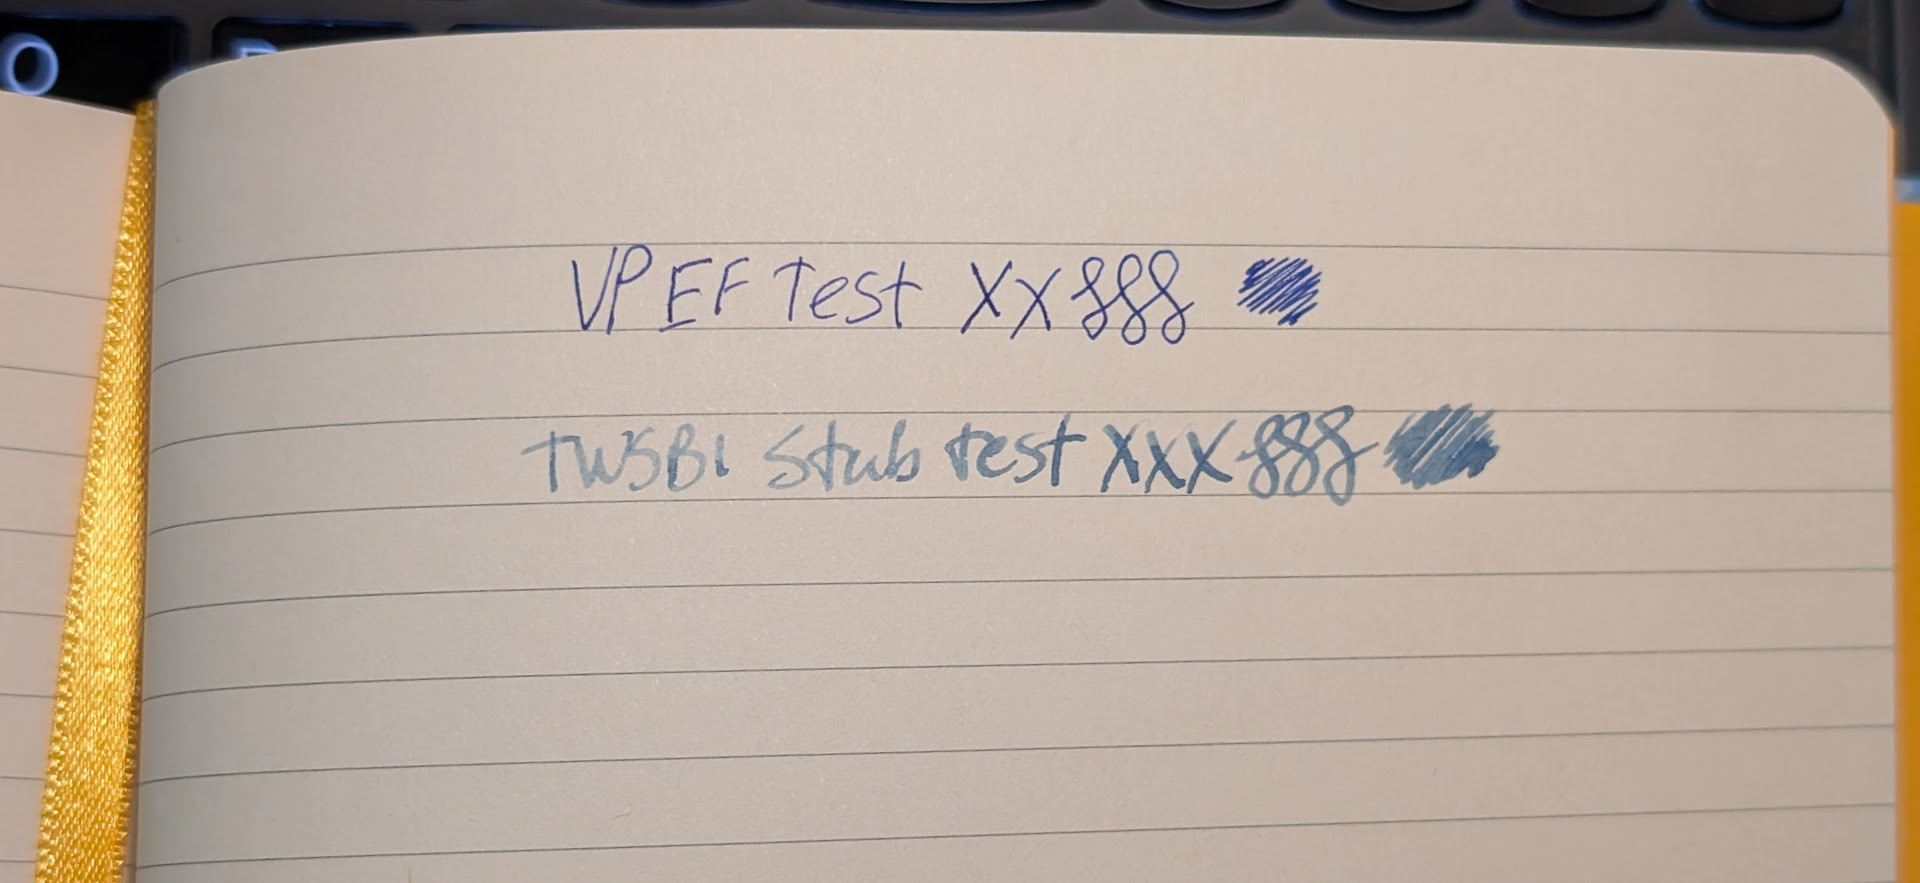 O
VP EF Test XX
TWSBI Stub test XXX